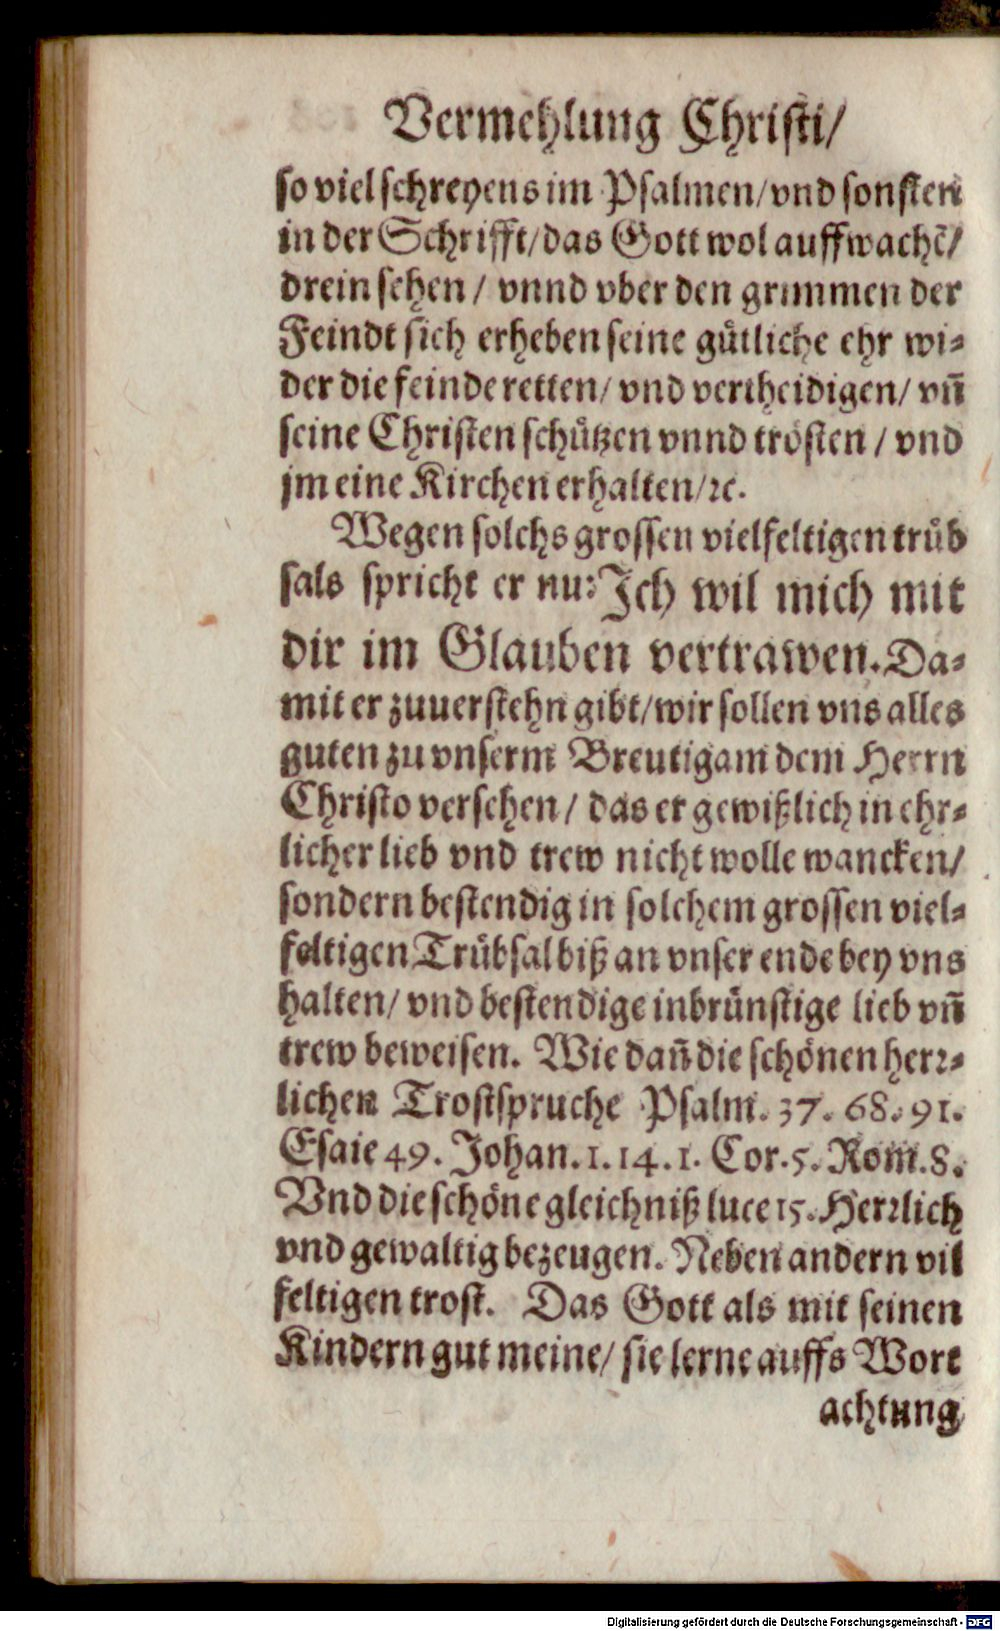 Vermehlung Christi/
so viel schreyens im Psalmen/vnd sonsten
in der Schrifft/das Gott wol auffwachē/
drein sehen/ vnnd vber den grimmen der
Feindt sich erheben seine gütliche ehr wi-
der die feinde retten/ vnd vertheidigen/ vn̄
seine Christen schützen vnnd trösten / vnd
jm eine Kirchen erhalten/ꝛc.
Wegen solchs grossen vielfeltigen trüb
sals spricht er nu: Ich wil mich mit
dir im Glauben vertrawen. Da-
mit er zuuerstehn gibt/wir sollen vns alles
guten zu vnserm Breutigam dem Herrn
Christo versehen/ das er gewißlich in ehr-
licher lieb vnd trew nicht wolle wancken/
sondern bestendig in solchem grossen viel-
feltigen Trübsal biß an vnser ende bey vns
halten/ vnd bestendige inbrünstige lieb vn̄
trew beweisen. Wie dan̄ die schönen herr-
lichen Trostspruche Psalm. 37. 68. 91.
Esaie 49. Johan. 1. 14. 1. Cor. 5. Rom. 8.
Vnd die schöne gleichniß luce 15. Herrlich
vnd gewaltig bezeugen. Neben andern vil
feltigen trost. Das Gott als mit seinen
Kindern gut meine/ sie lerne auffs Wort
achtung
Digitalisierung gefördert durch die Deutsche Forschungsgemeinschaft - DFG